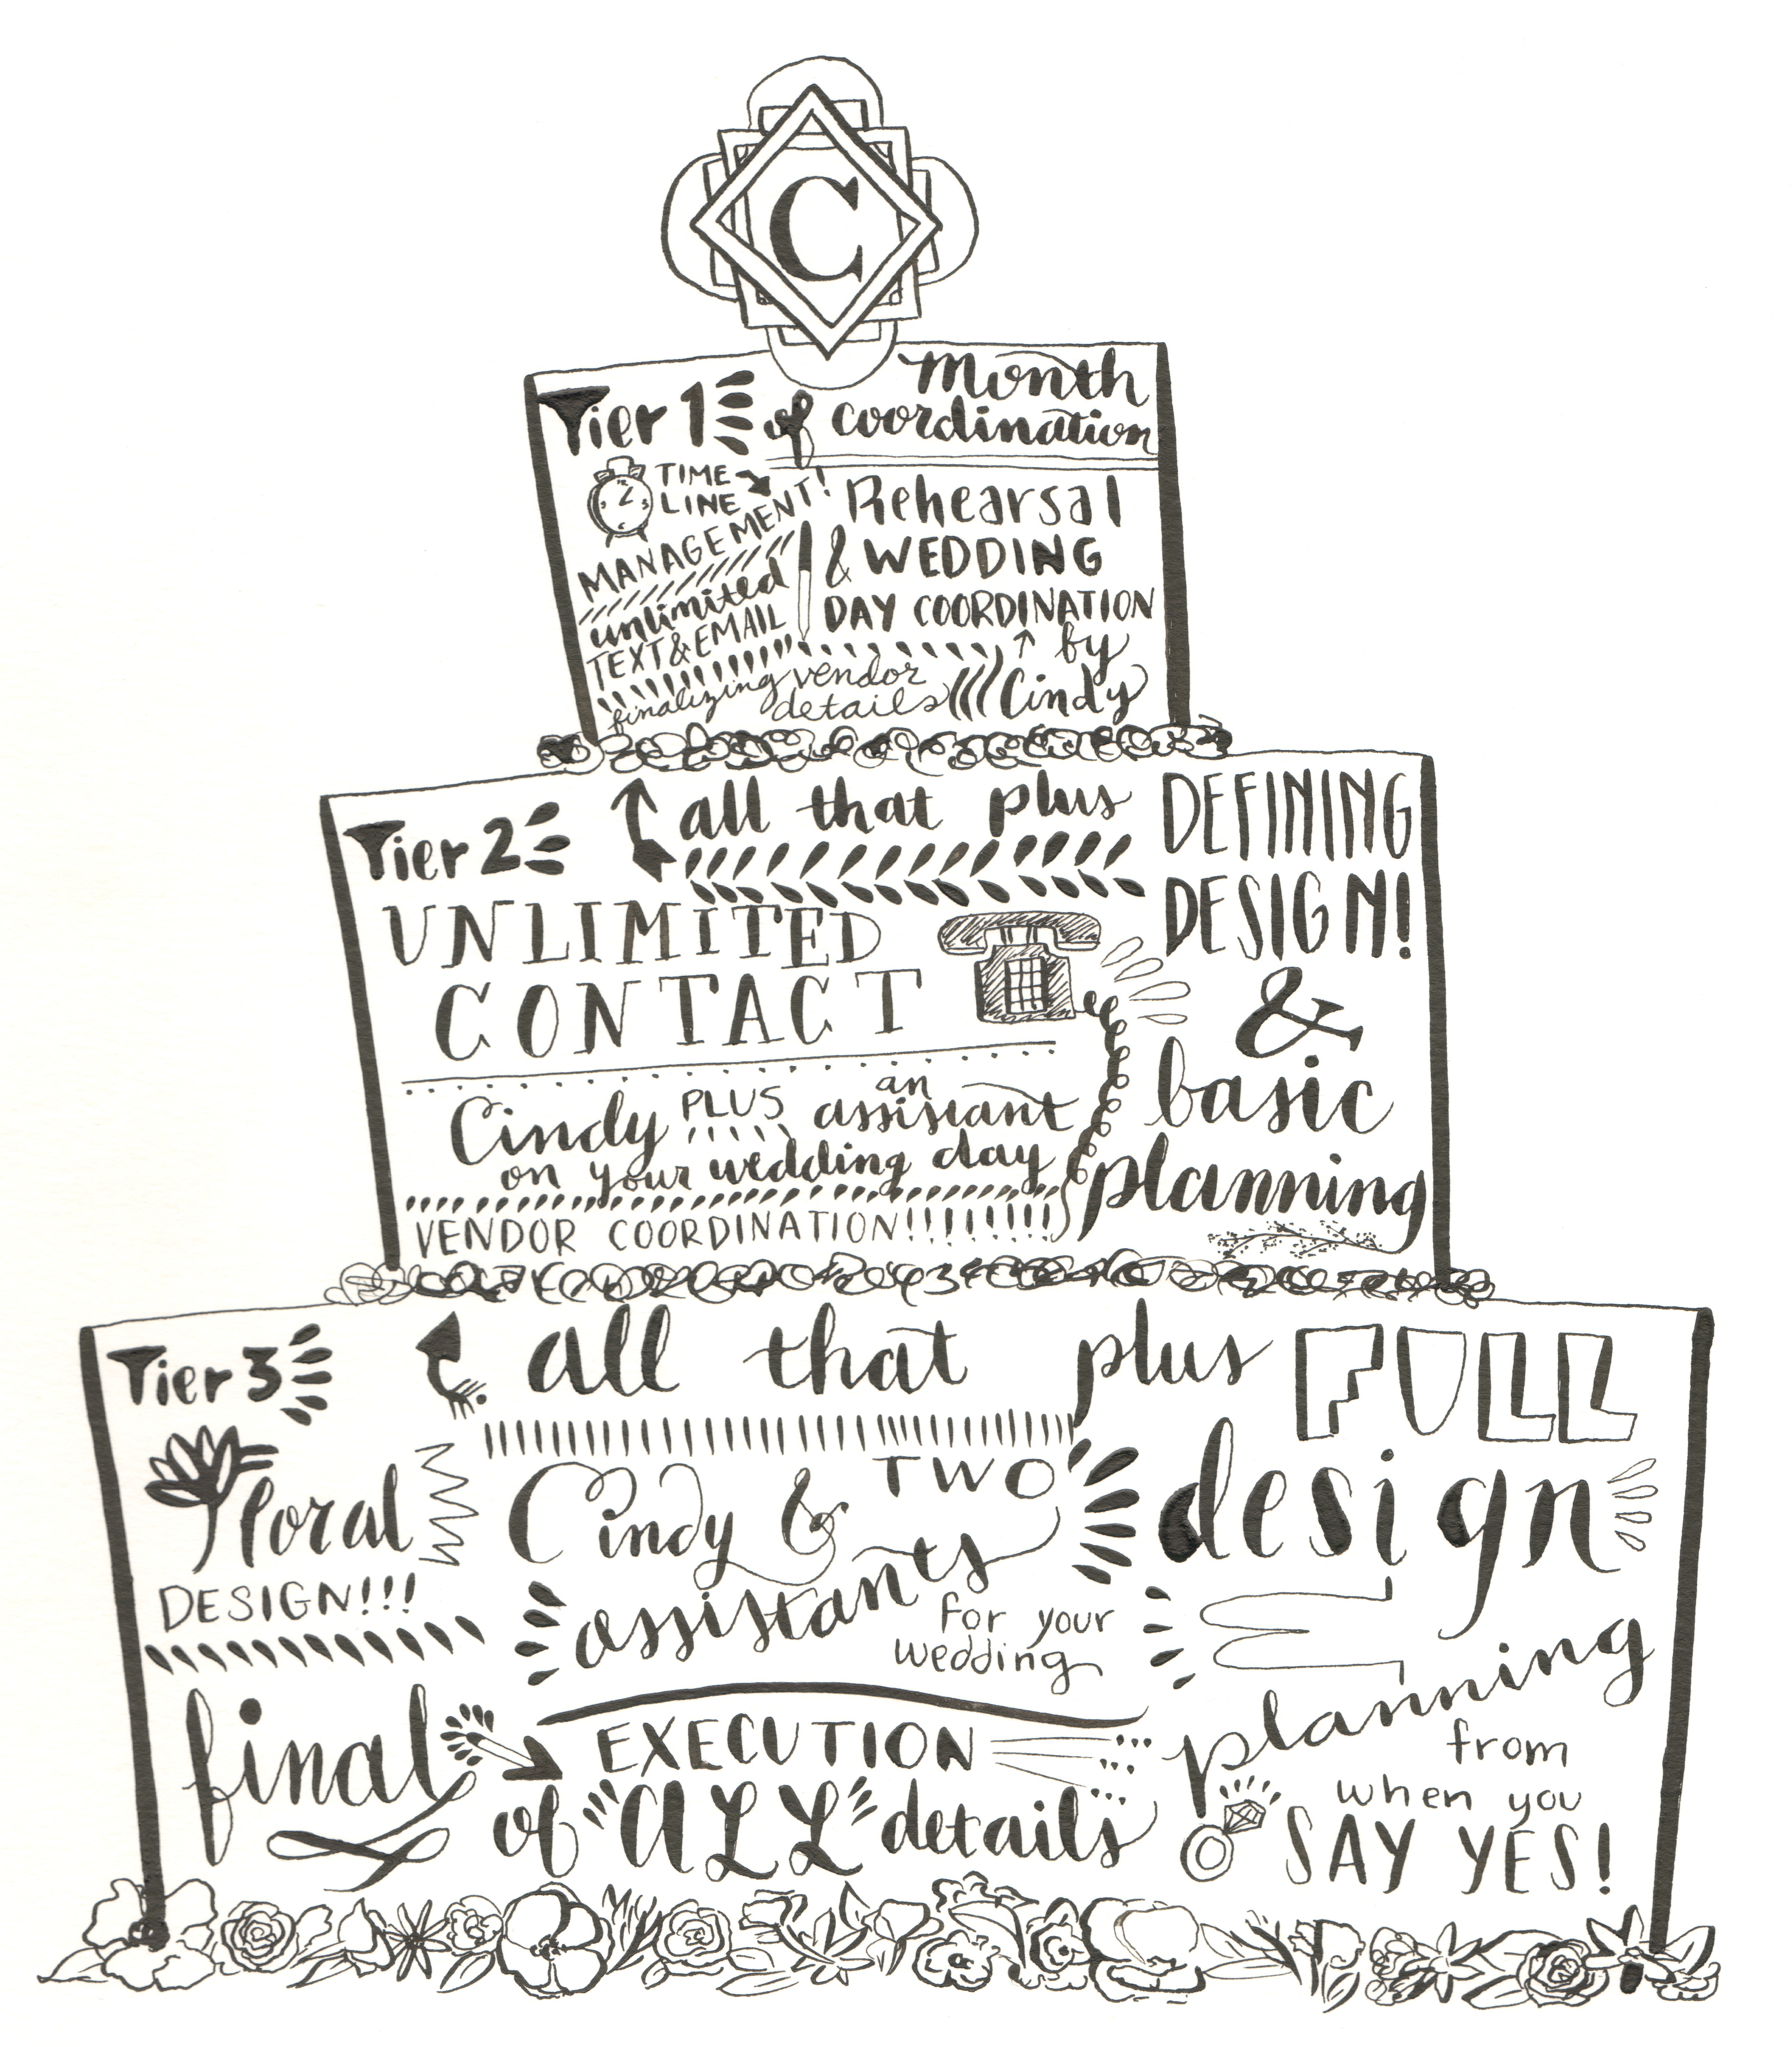 C
Tier 1
Month
of coordination
TIME
LINE
MANAGEMENT!
unlimited
TEXT & EMAIL
finalizing vendor
details
Rehearsal
& WEDDING
DAY COORDINATION
by
Cindy
Tier 2
all that plus
DEFINING
DESIGN!
&
basic
planning
UNLIMITED
CONTACT
Cindy PLUS an
assistant
on your wedding day
VENDOR COORDINATION!!!!!!!!!
Tier 3
all that plus FULL
design
planning
from
when you
SAY YES!
floral
DESIGN!!!
Cindy & TWO
assistants
for your
wedding
final
EXECUTION
of "ALL" details